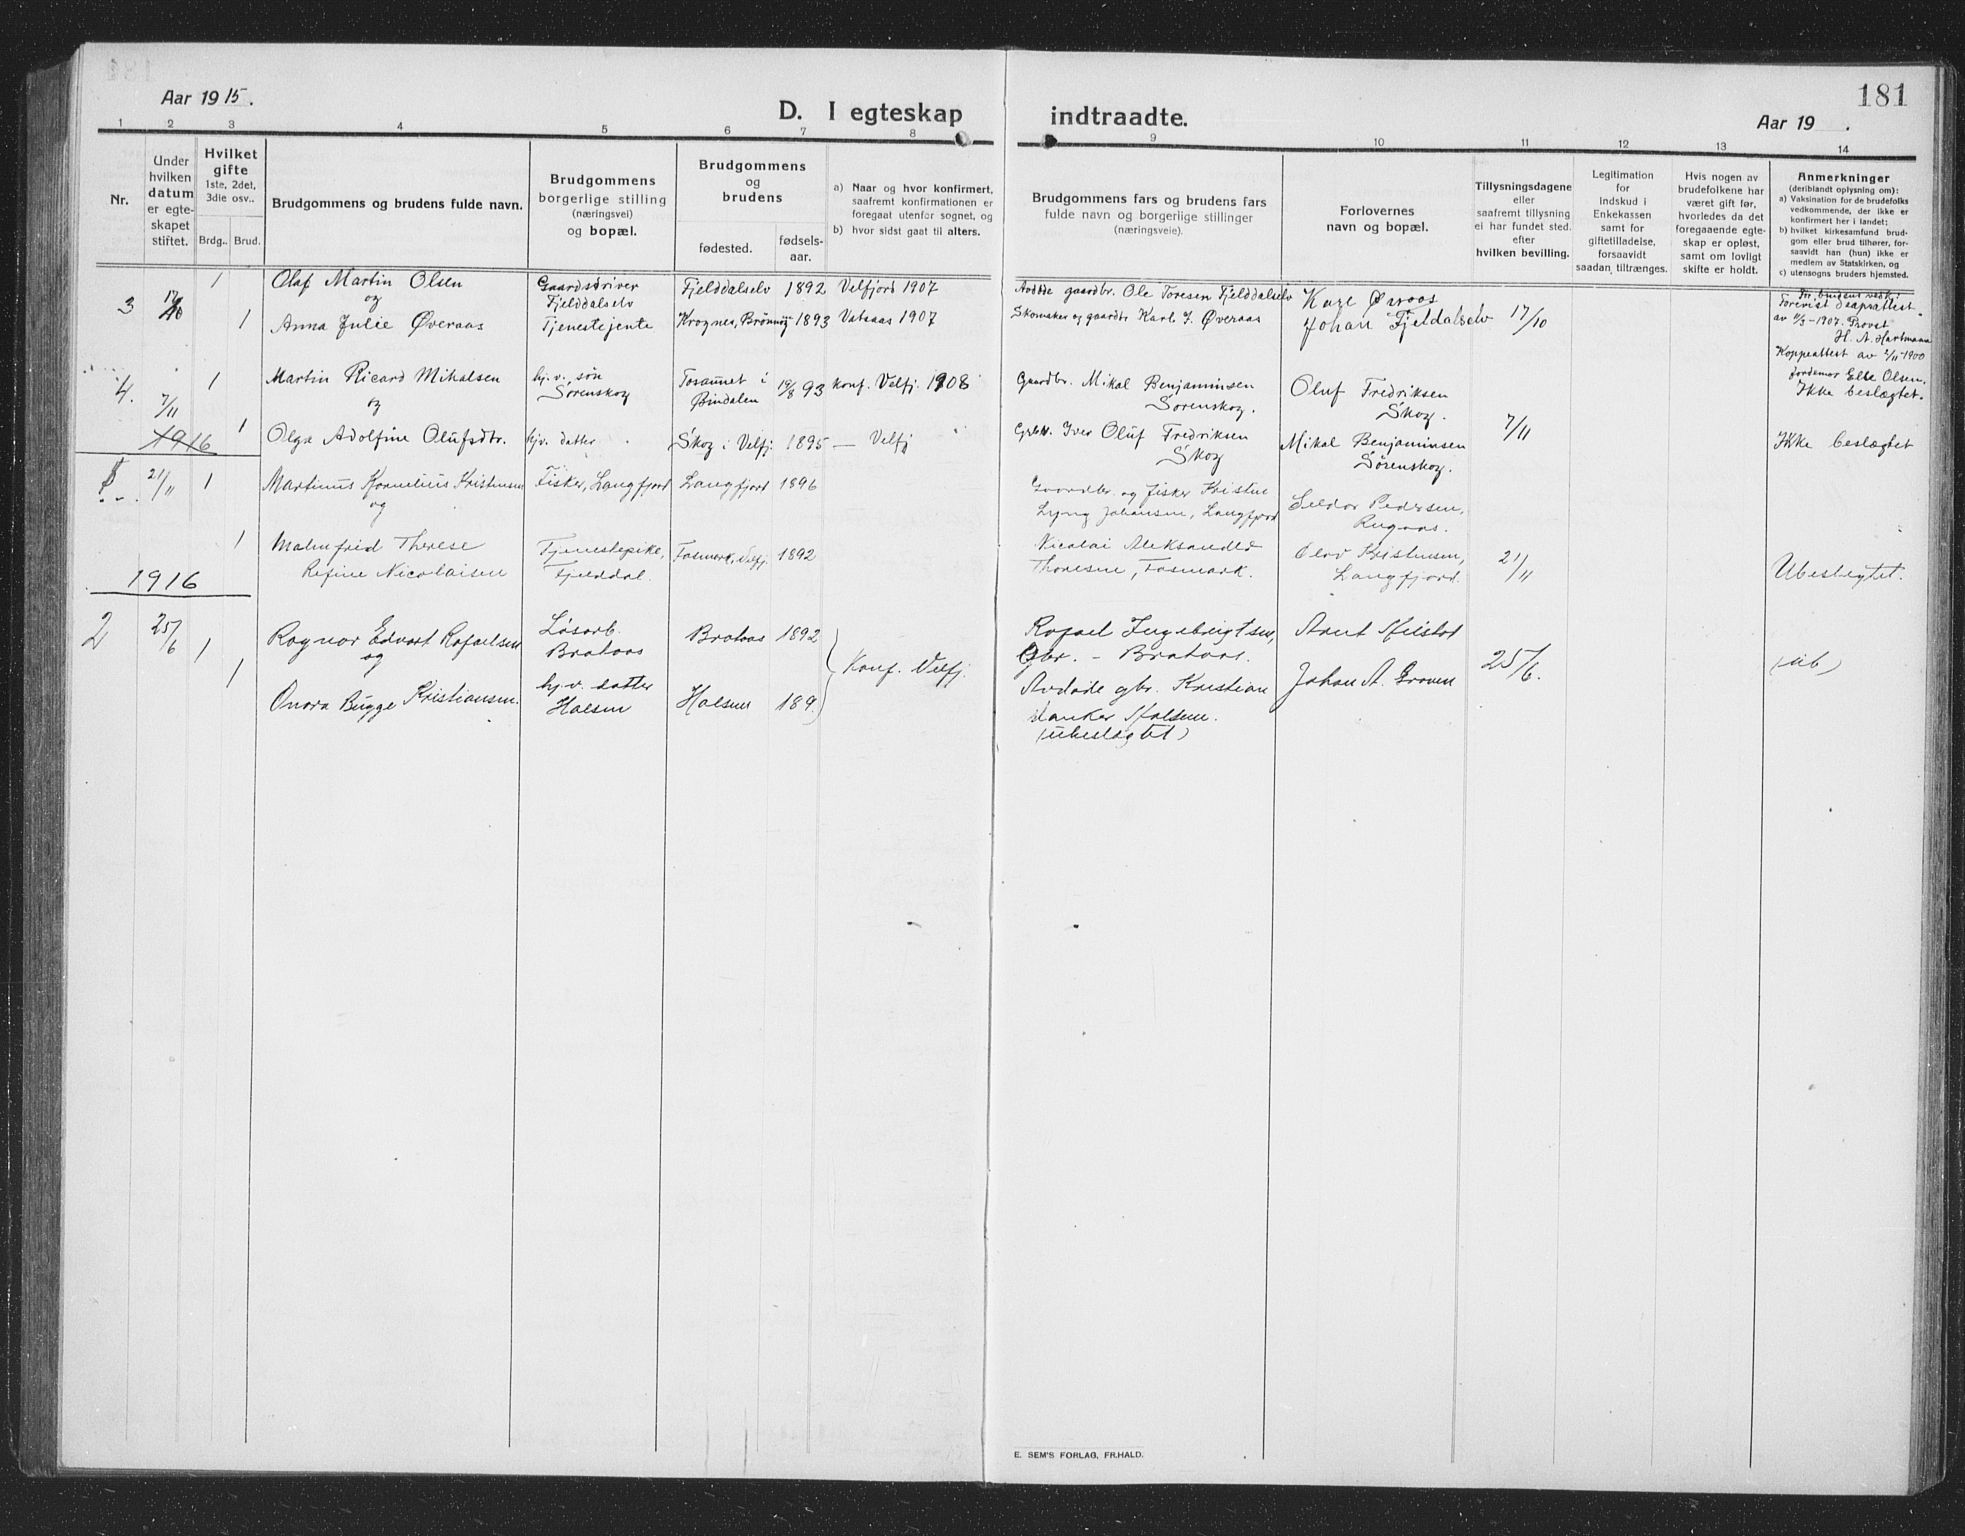 181
Aar 1915.
D. I egteskap indtraadte.
Aar 19 .
1 2 3 4 5 6 7 8 9 10 11 12 13 14
Nr.
Under
hvilken
datum
er egte-
skapet
stiftet.
Hvilket
gifte
1ste, 2det,
3die osv..
Brdg.. Brud.
Brudgommens og brudens fulde navn.
Brudgommens
borgerlige stilling
(næringsvei)
og bopæl.
Brudgommens
og
brudens
fødested.
fødsels-
aar.
a) Naar og hvor konfirmert,
saafremt konfirmationen er
foregaat utenfor sognet, og
b) hvor sidst gaat til alters.
Brudgommens fars og brudens fars
fulde navn og borgerlige stillinger
(næringsveie).
Forlovernes
navn og bopæl.
Tillysningsdagene
eller
saafremt tillysning
ei har fundet sted.
efter
hvilken bevilling.
Legitimation
for
Indskud i
Enkekassen
samt for
giftetilladelse,
forsaavidt
saadan tiltrænges.
Hvis nogen av
brudefolkene har
været gift før,
hvorledes da det
foregaaende egte-
skap er opløst,
samt om lovligt
skifte er holdt.
Anmerkninger
(deriblandt oplysning om):
a) Vaksination for de brudefolks
vedkommende, der ikke er
konfirmert her i landet;
b) hvilket kirkesamfund brud-
gom eller brud tilhører, for-
saavidt han (hun) ikke er
medlem av Statskirken, og
c) utensogns bruders hjemsted.
3 1 Olaf Martin Olsen
og
1 Anna Julie Øveraas
Gaardsdriver
Fjelddalselv
Tjenestejente
Fjelddalselv 1892 Velfjord 1907
Krognes, Brønnøy 1893 Vatsaas 1907
gaardbr. Ole Toresen Fjelddalselv
Skomaker og gaardbr Karl J. Øveraas
Johan Fjeldalselv
17/10
For brudens vedk.
Forevist daapsattest
av 11/3-1907. Provst
H. A. Hartmann
Koppeattest av 2/11 1900
Jordemor Olsen.
Ikke beslegtet.
4. 7/11 1 Martin Ricard Mikalsen
og
1 Olga Adolfine Olufsdtr.
hj.v. søn
Sørenskog
hjv. datter
Tosaunet i
Bindalen 19/8 93 konf. Velfj. 1908
Skog i Velfj. 1895 — Velfj
Gaardbr. Mikal Benjaminsen
Sørenskog.
Iver Oluf Fredriksen
Skog
Oluf Fredriksen
Skog.
Mikal Benjaminsen
Sørenskog.
7/11
Ikke beslegtet
1916
21/11 1 Martinus Kornelius Kristensen
og
1 Malmfrid Therese
Refine Nicolaisen
Fisker, Langfjord
Tjenestepike,
Fjelddal.
Langfjord 1896
Fosmark, Velfj. 1892
Gaardbr. og fisker Kristen
Lyng Johansen, Langfjord
Nicolai
Thoresen, Fosmark.
Seldor Pedersen,
Rugaas.
Kristensen,
Langfjord.
21/11
Ubeslegtet.
1916
2 25/6 1 Ragnar Edvart Rafaelsen
og
1 Onora Bugge Kristiansen.
Løsarb.
Brataas
hj.v. datter
Halsen
Brataas 1892
Halsen 189.
Konf. Velfj.
Rafael Ingebrigtsen,
Gbr. - Brataas.
Avdøde gbr. Kristian
Hanker Halsen.
(ubeslegtet)
Arnt Hilstad
Johan A. Graven
25/6.
(ub)
E. SEM'S FORLAG, FR.HALD.